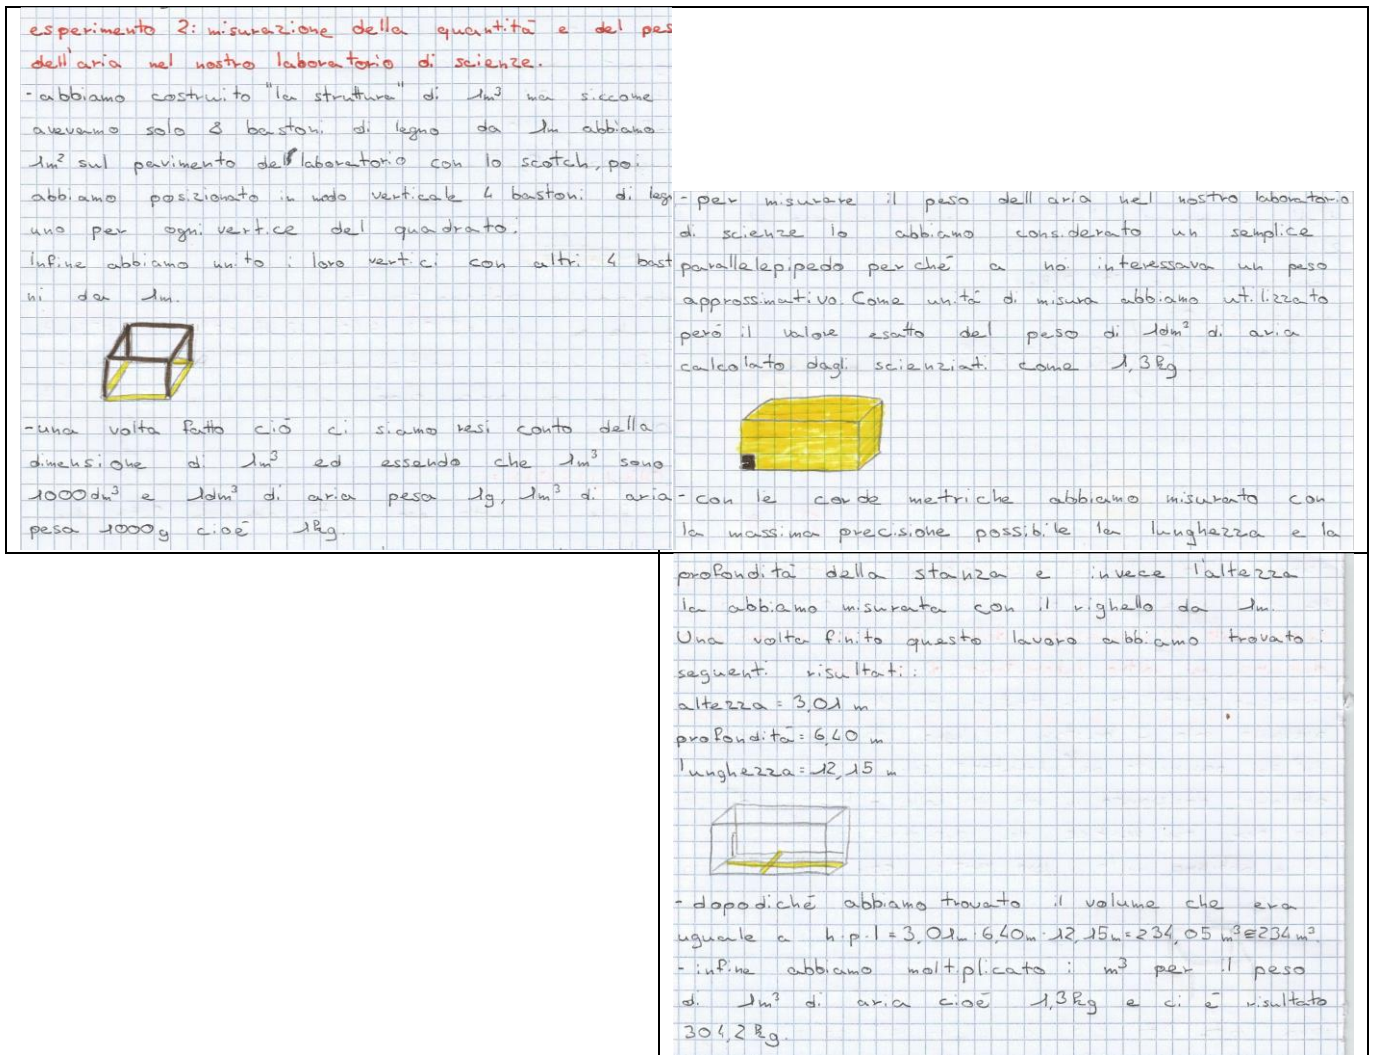 esperimento 2: misurazione della quantitā e del pes
dell'aria nel nostro laboratorio di scienze.
- abbiamo costruito "la struttura" di 1m³ ma siccome
avevamo solo 8 bastoni di legno da 1m abbiamo
1m² sul pavimento del laboratorio con lo scotch, poi
abbiamo posizionato in modo verticale 4 bastoni di leg
uno per ogni vertice del quadrato.
Infine abbiamo unito i loro vertici con altri 4 bast
ni da 1m.
- una volta fatto ciō ci siamo resi conto della
dimensione di 1m³ ed essendo che 1m³ sono
1000dm³ e 1dm³ di aria pesa 1g, 1m³ di aria
pesa 1000g cioē 1kg.
- per misurare il peso dell'aria nel nostro laboratorio
di scienze lo abbiamo considerato un semplice
parallelepipedo perchē a noi interessava un peso
approssimativo. Come unitā di misura abbiamo utilizzato
perō il valore esatto del peso di 1dm³ di aria
calcolato dagli scienziati come 1,3kg.
- con le corde metriche abbiamo misurato con
la massima precisione possibile la lunghezza e la
profonditā della stanza e invece l'altezza
la abbiamo misurata con il righello da 1m.
Una volta finito questo lavoro abbiamo trovato i
seguenti risultati:
altezza = 3,01 m
profonditā = 6,40 m
lunghezza = 12,15 m
- dopodichē abbiamo trovato il volume che era
uguale a h·p·l = 3,01m·6,40m·12,15m=234,05 m³≅234m³.
- infine abbiamo moltiplicato i m³ per il peso
di 1m³ di aria cioē 1,3kg e ci ē risultato
304,2kg.